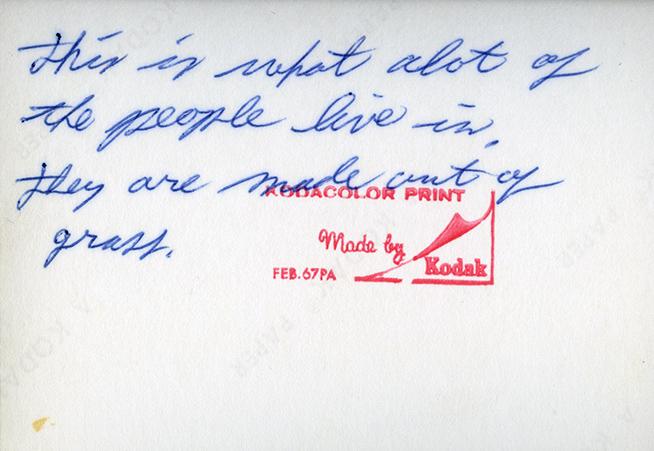 This is what alot of
the people live in.
They are made out of
grass.
KODACOLOR PRINT
Made by
Kodak
FEB.67PA